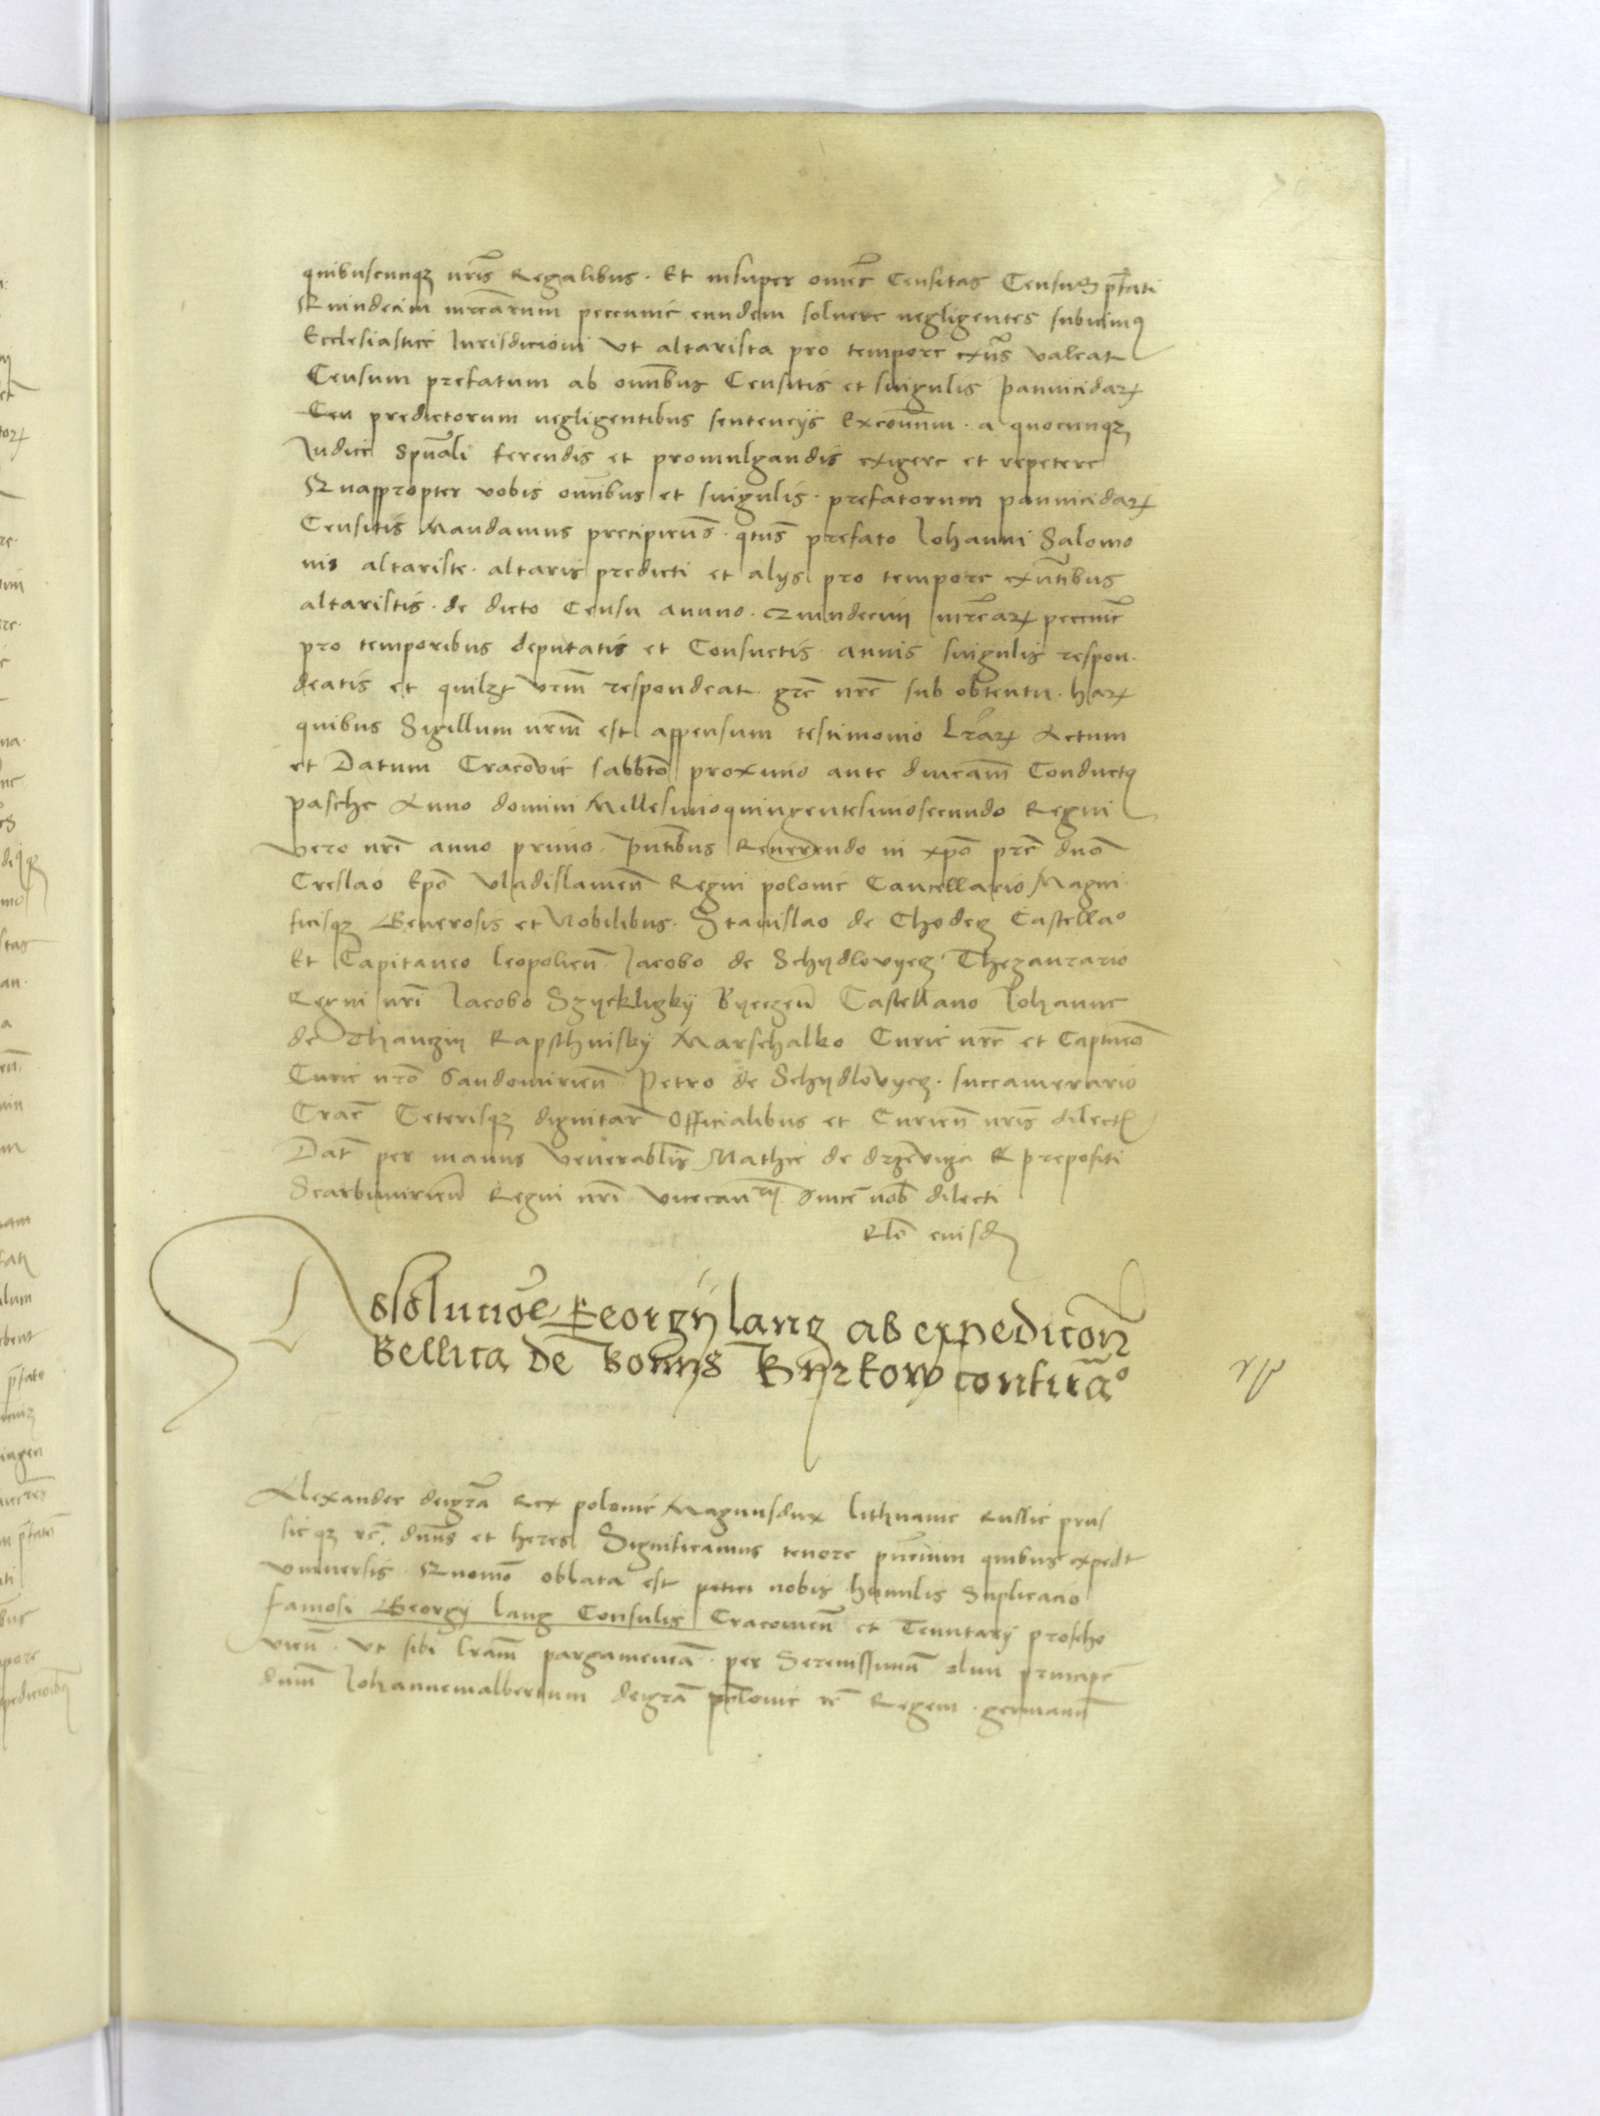 quibuscunqz nris Regalibus. Et insuper omes Censitas Censum pfati
Quindecim mrcarum pecunie eundem soluere negligentes subicimus
Ecclesiastice Iurisdicioni vt altarista pro tempore exns valeat
Censum prefatum ab omibus Censitis et singulis pannicidarz
Ceu predictorum negligentibus sentencijs excomm. a quocunqz
Iudice spuali ferendis et promulgandis exigere et repetere
Quappropter vobis omibus et singulis prefatorum pannicidarz
Censitis Mandamus precipiens qtus prefato Iohanni Salomo
nis altariste altaris predicti et alys pro tempore exntibus
altaristis de dicto Censu annuo quindecim mrcarz pecunie
pro temporibus deputatis et Consuetis annis singulis respon
deatis et quilzt vrm respondeat gre nre sub obtentu harz
quibus Sigillum nrm est appensum testimonio lrarz Actum
et Datum Cracovie sabbto proximo ante dnicam Conductus
pasche Anno domini Millesimoquingentesimosecundo Regni
vero nri anno primo. Pntibus Reuerendo in xpo pre dno
Creslao Epo Vladislauien Regni polonie Cancellario Magni
ficisqz Generosis et Nobilibus. Stanislao de Chodecz Castellao
Et Capitaneo leopolien Iacobo de Schydlovyecz Thezaurario
Regni nri Iacobo Szyekligky Byeczen Castellano Iohanne
de Thanczin Rapschinsky Marschalko Curie nre et Captneo
Curie nro Sandomirien Petro de Schydlovyecz succamerario
Crac Ceterisqz dignitar Officialibus et Curien nris dilectis
Dat per manus Venerablis Mathie de drzewicza R prepositi
Scarbimirien Regni nri vicecanrij Since nob dilecti
Rlo eiusd
Absolucioe Georgij lang ab expedicon
Bellica de bonijs Kyrkow confirao
Alexander deigra Rex polonie Magnusdux lithuanie Russie prus
sieqz rc. dnus et heres Significamus tenore pncium quibus expedt
vniuersis Quomo oblata est nobis humilis Suplicacio
famosi Georgy lang Consulis Cracouien et Tenutarij proscho
vien. Vt sibi lram pargamenea per Serenissimu olim principe
dnm Iohannemalbertum deigra polonie rc Regem germanu